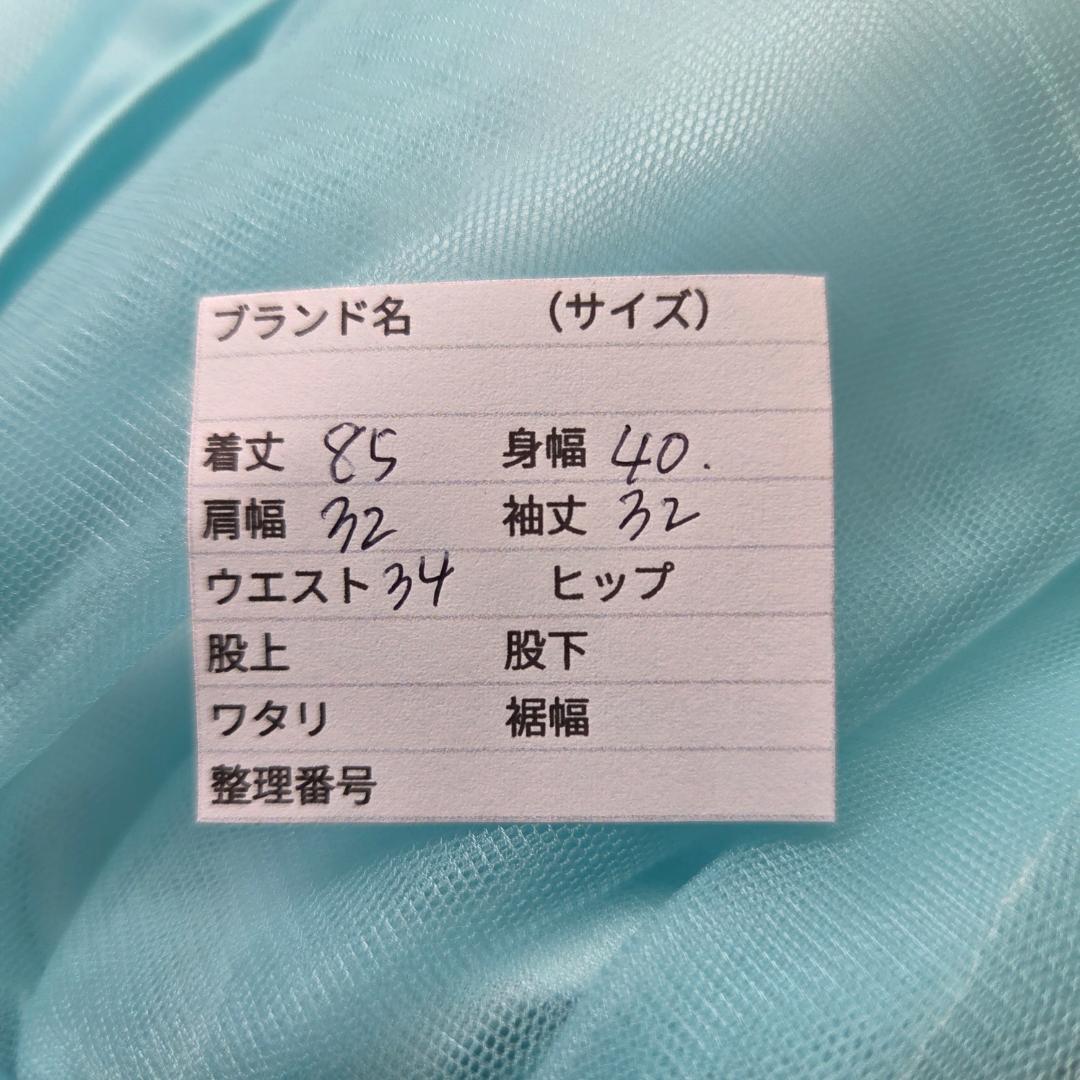 ブランド名 （サイズ）
着丈 85 身幅 40.
肩幅 32 袖丈 32
ウエスト34 ヒップ
股上 股下
ワタリ 裾幅
整理番号